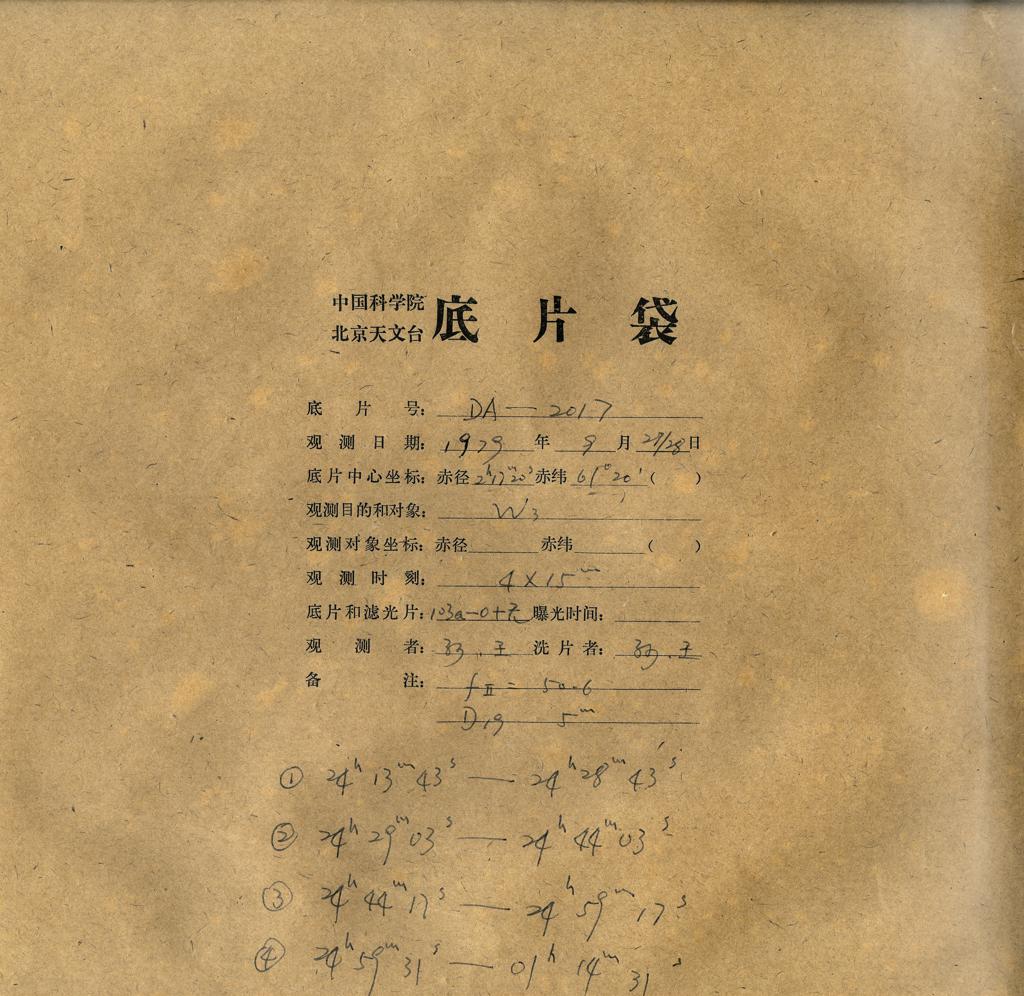 中国科学院
北京天文台
底 片 袋
底 片 号: DA—2017
观 测 日 期: 1979 年 9 月 27/28 日
底片中心坐标: 赤径 2ʰ17ᵐ20ˢ 赤纬 61°20′ ( )
观测目的和对象: W3
观测对象坐标: 赤径 赤纬 ( )
观 测 时 刻: 4×15ᵐ
底片和滤光片: 103a-O+无 曝光时间:
观 测 者: 王 洗 片 者: 王
备 注: fⅡ= 50.6
D19 5ᵐ
① 24ʰ 13ᵐ 43ˢ — 24ʰ 28ᵐ 43ˢ
② 24ʰ 29ᵐ 03ˢ — 24ʰ 44ᵐ 03ˢ
③ 24ʰ 44ᵐ 17ˢ — 24ʰ 59ᵐ 17ˢ
④ 24ʰ 59ᵐ 31ˢ — 01ʰ 14ᵐ 31ˢ